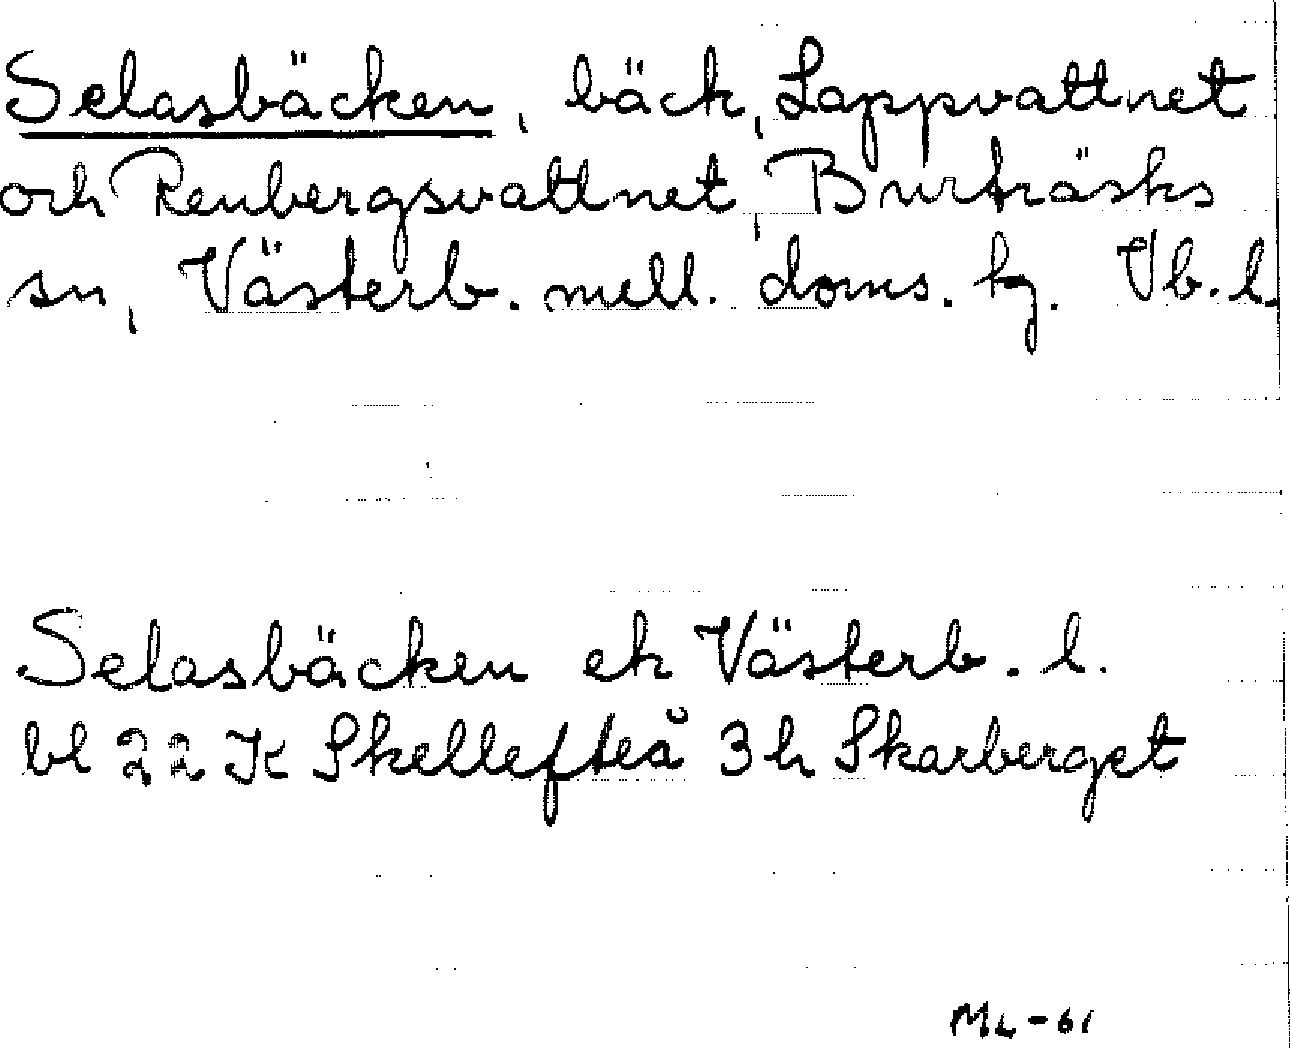 Selasbäcken, bäck, Lappvattnet
och Renbergsvattnet, Burträsks
sn, Västerb. mell. doms. hg. Vb. l.
Selasbäcken ek Västerb. l.
bl 22 K Skellefteå 3h Skarberget
ML-61